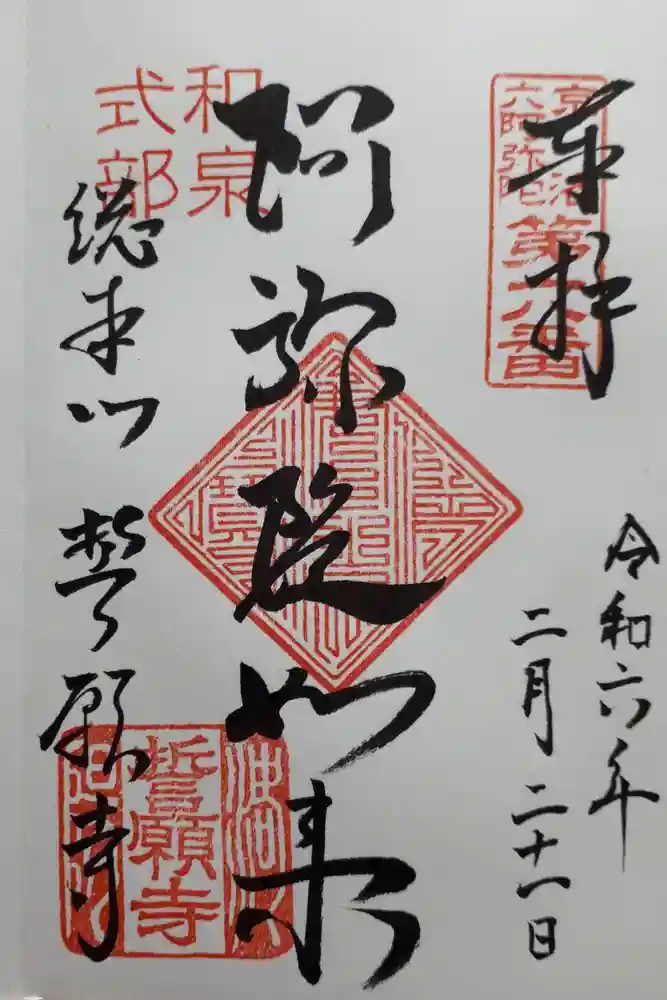 奉拝
京洛
六阿弥陀
第六番
令和六年
二月二十一日
阿弥陀如来
和泉
式部
総本山 誓願寺
誓願寺